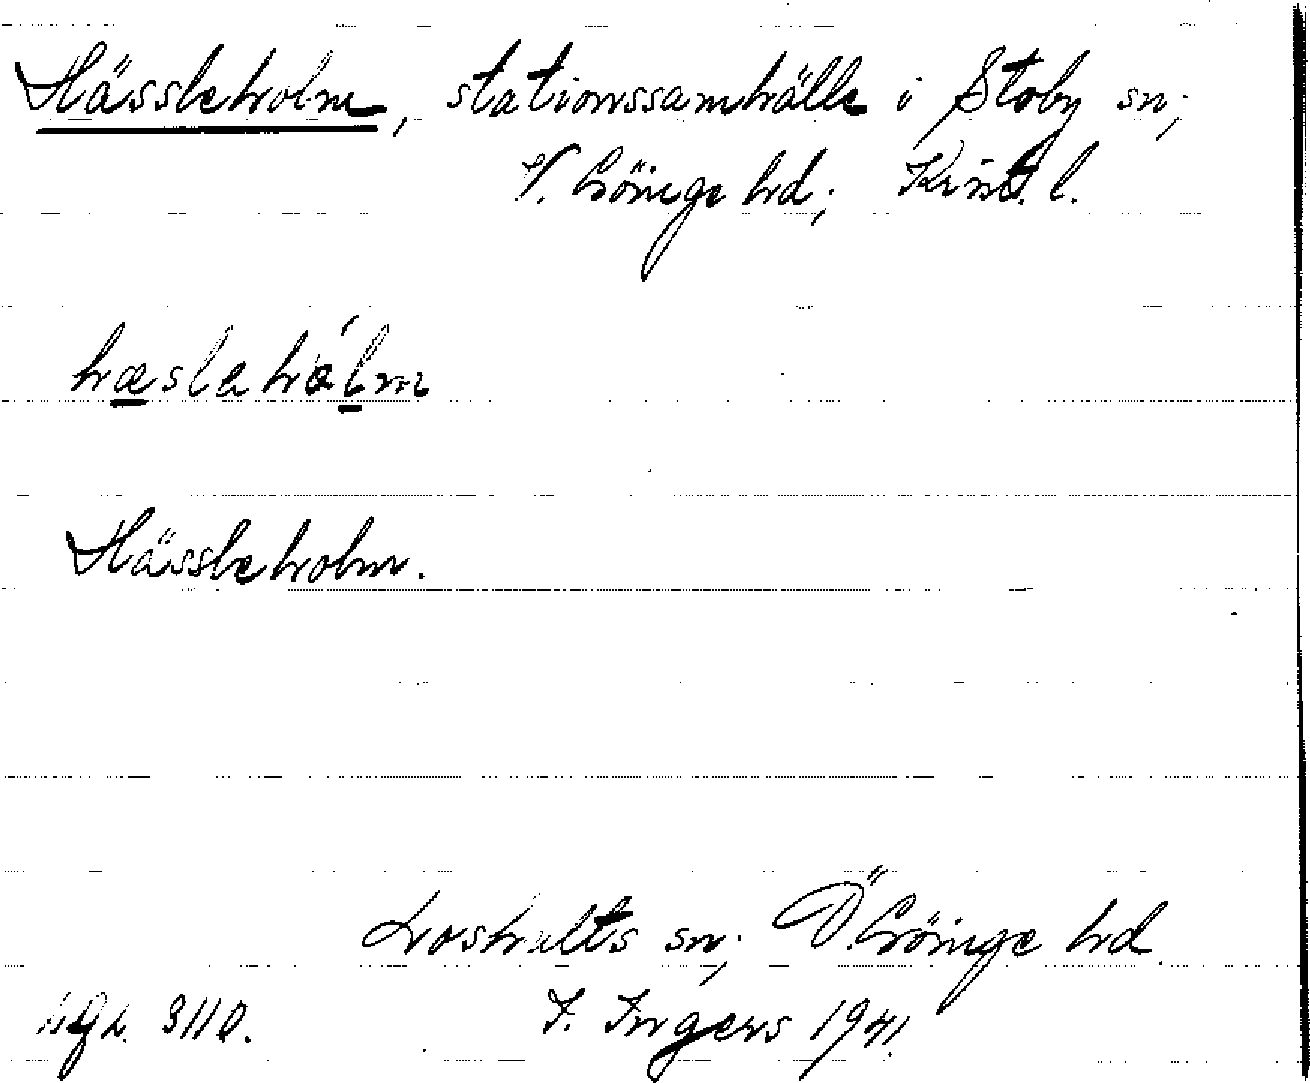 Hässleholm, stationssamhälle i Stoby sn;
V. Göinge hd; Krist. l.
hæslahólm
Hässleholm.
Loshults sn; Ö. Göinge hd.
I. Ingers 1941.